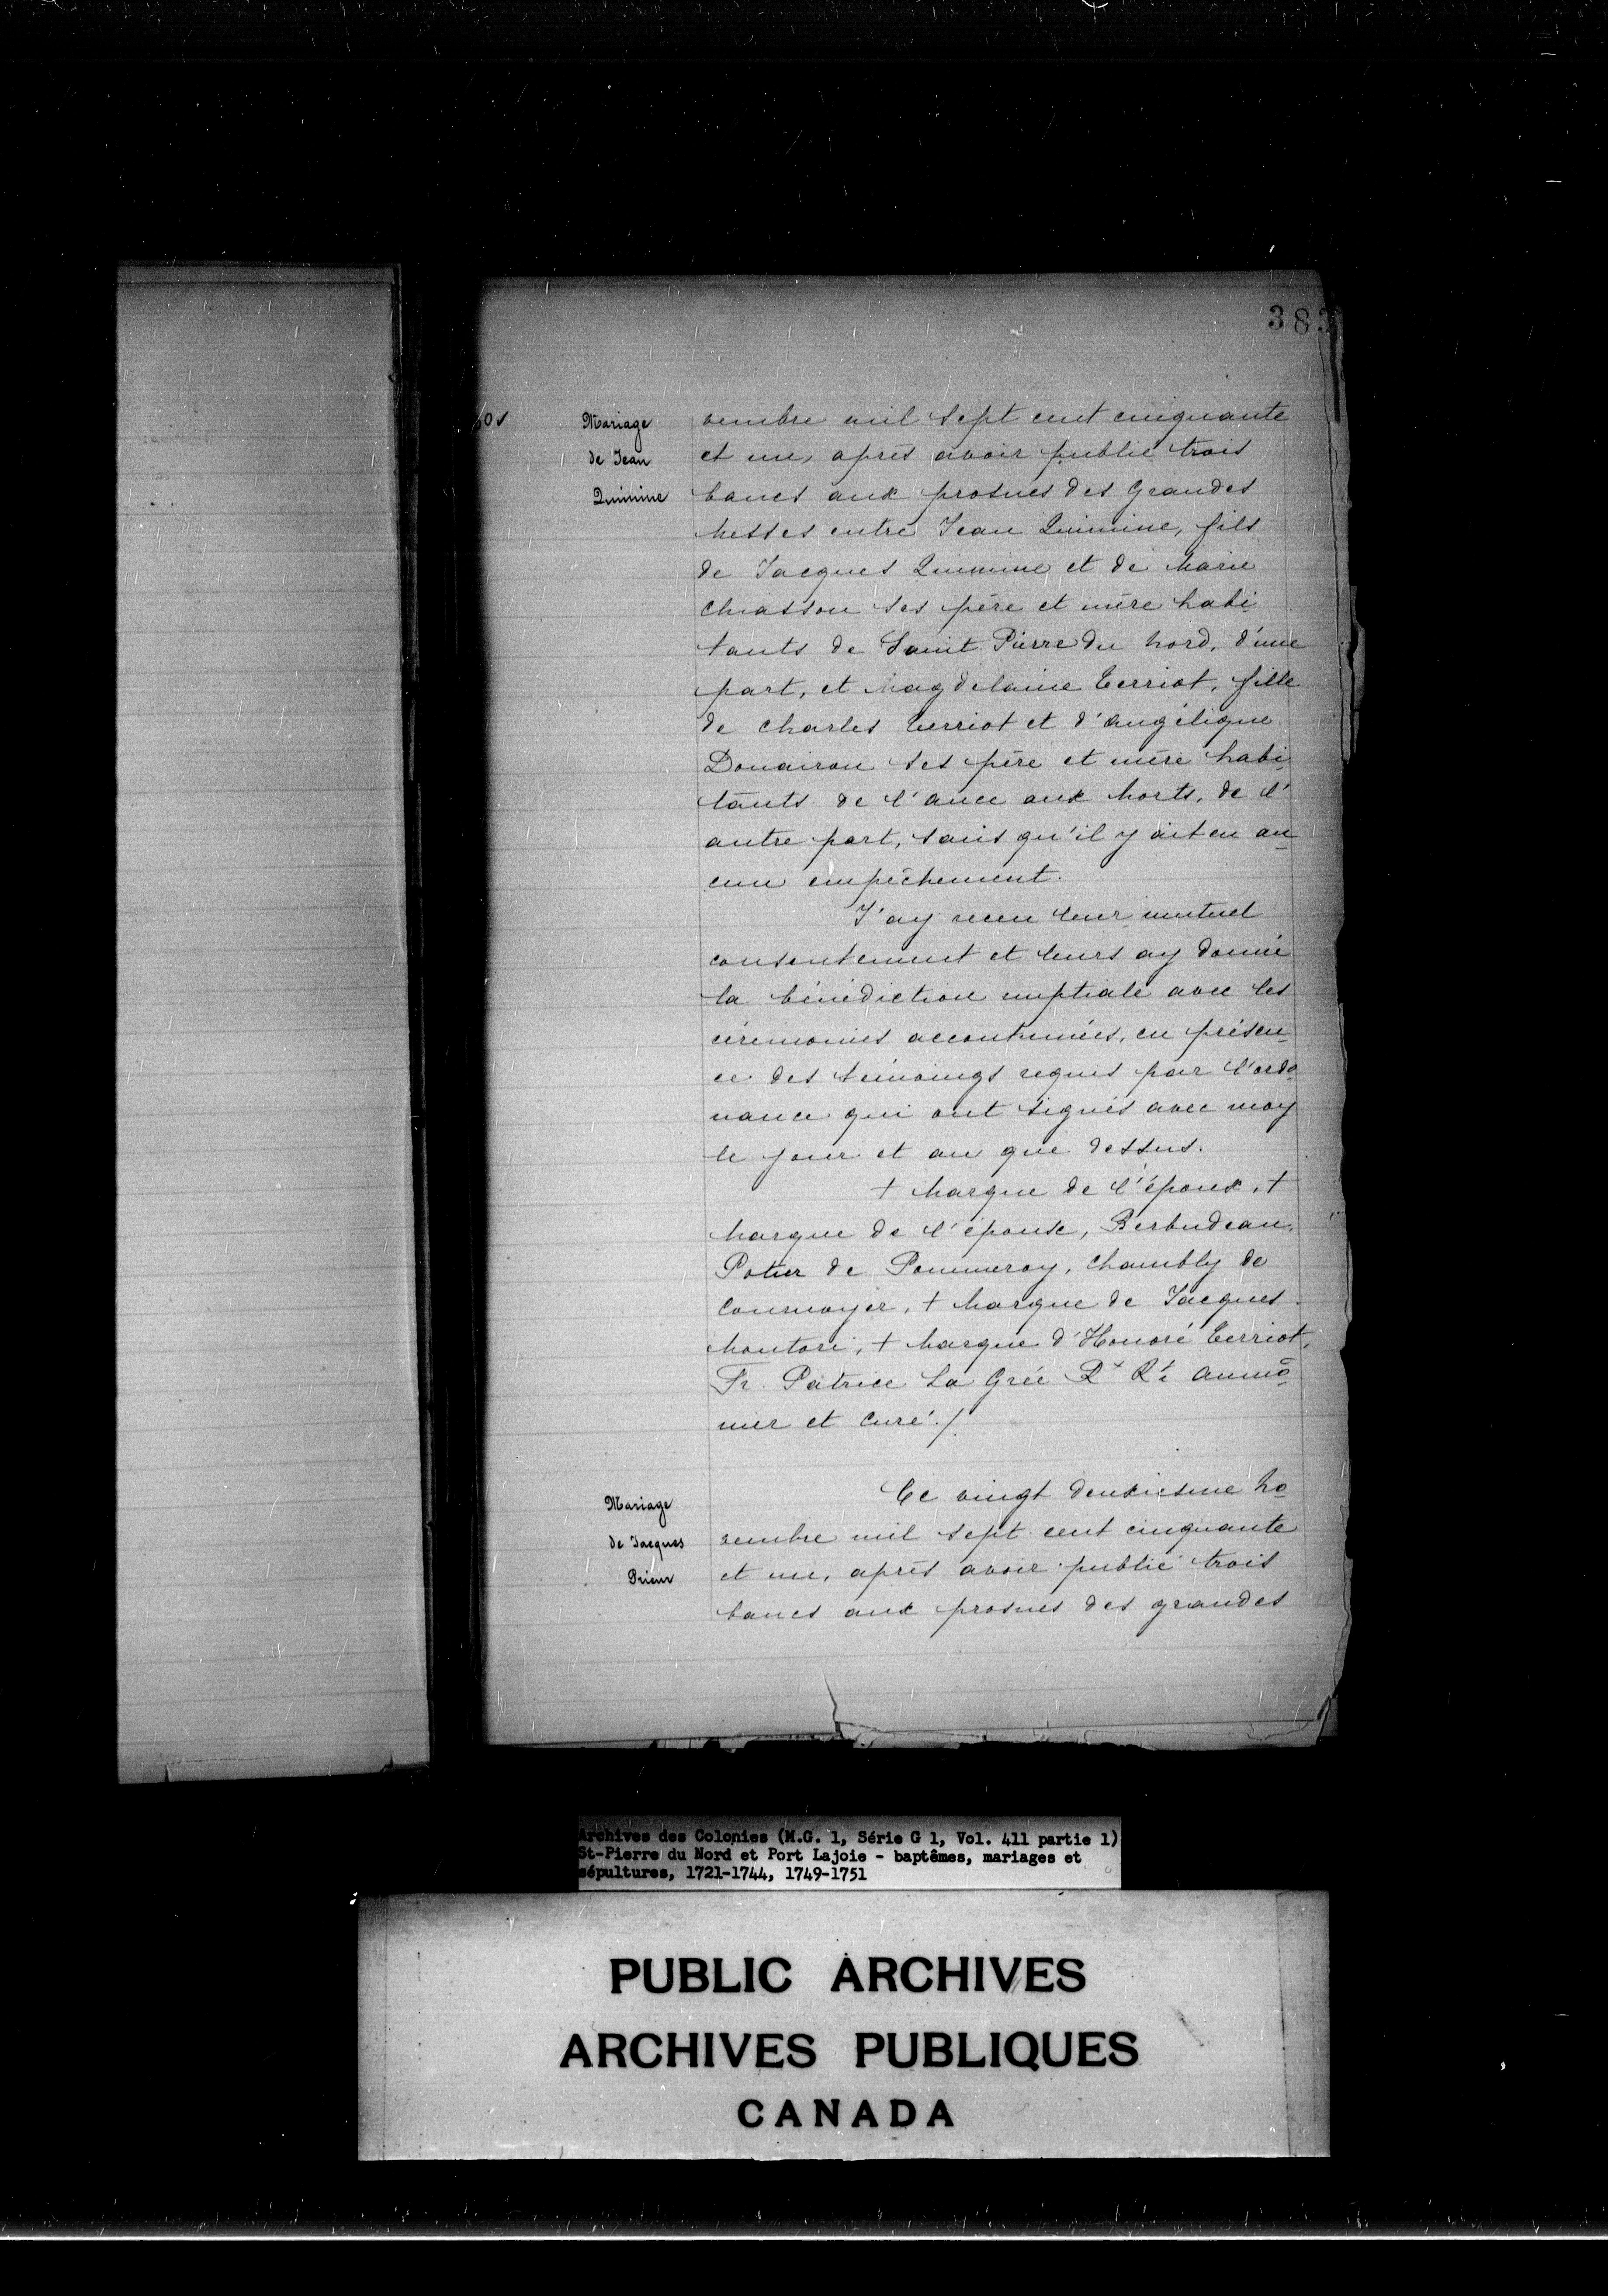 383
Mariage
de Jean
Quimine
vembre mil sept cent cinquante
et un, après avoir publié trois
bancs aux prosnes des Grandes
Messes entre Jean Quimine, fils
de Jacques Quimine et de Marie
Chiasson ses père et mère habi
tants de Saint Pierre du Nord, d'une
part, et Magdelaine Terriot, fille
de Charles Terriot et d'angélique
Douairon ses père et mère habi
tants de l'ance aux Morts, de l'
autre part, sans qu'il y ait eu au
cun empêchement.
J'ay receu leur mutuel
consentement et leurs ay donné
la bénédiction nuptiale avec les
cérémonies accoutumées, en présen
ce des témoings requis par l'ordo
nance qui ont signés avec moy
le jour et an que dessus.
+ Marque de l'époux, +
Marque de l'épouse, Berbudeau,
Potier de Pommeroy, Chambly de
Cournoyer, + Marque de Jacques
Montori, + Marque d'Honoré Terriot,
Fr. Patrice La Grée Rt Rt aumô
nier et curé./.
Mariage
de Jacques
Prieur
Ce vingt deuxiesme No
vembre mil sept cent cinquante
et un, après avoir publié trois
bancs aux prosnes des grandes
Archives des Colonies (M.G. 1, Série G 1, Vol. 411 partie 1)
St-Pierre du Nord et Port Lajoie - baptêmes, mariages et
sépultures, 1721-1744, 1749-1751
PUBLIC ARCHIVES
ARCHIVES PUBLIQUES
CANADA